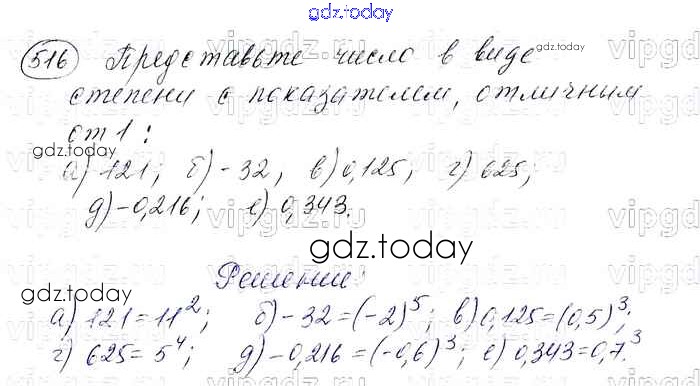 gdz.today
516 Представьте число в виде gdz.today
степени с показателем, отличным
от 1:
gdz.today
а) 121; б) -32; в) 0,125; г) 625;
д) -0,216; е) 0,343.
gdz.today
Решение:
gdz.today
а) 121 = 11²; б) -32 = (-2)⁵; в) 0,125 = (0,5)³;
г) 625 = 5⁴; д) -0,216 = (-0,6)³; е) 0,343 = 0,7³.